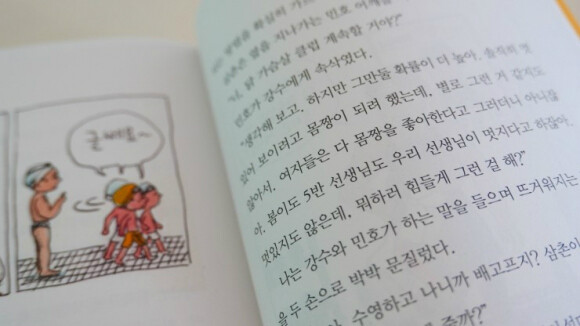 글쎄요~
옆을 지나가는 민호 어깨를
닭 가슴살 클럽 계속할 거야?"
민호가 강수에게 속삭였다.
"생각해 보고. 하지만 그만둘 확률이 더 높아. 솔직히 멋
있어 보이려고 몸짱이 되려 했는데, 별로 그런 거 같지도
않아서. 여자들은 다 몸짱을 좋아한다고 그러더니 아니잖
아. 봄이도 5반 선생님도 우리 선생님이 멋지다고 하잖아.
멋있지도 않은데. 뭐하러 힘들게 그런 걸 해?"
나는 강수와 민호가 하는 말을 들으며 뜨거워지는
을 두 손으로 박박 문질렀다.
수영하고 나니까 배고프지? 삼촌이
줄까?"